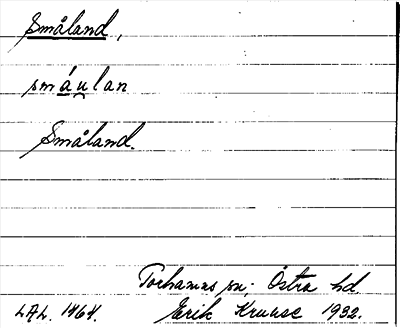 Småland,
smáu̯lan
Småland.
Torhamns sn. Östra hd.
LAL. 1464. Erik Kruuse 1932.